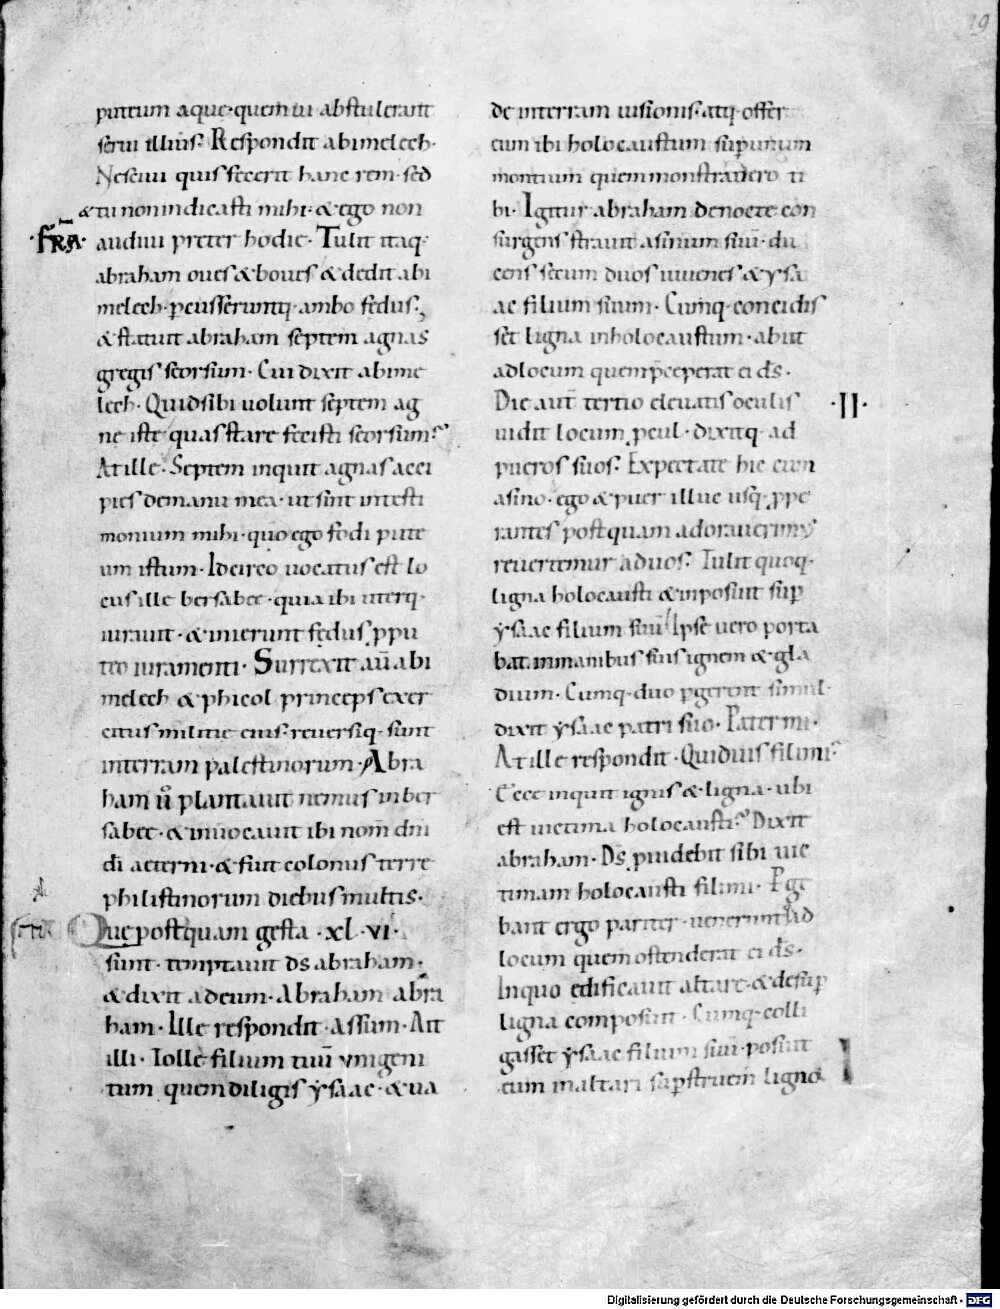 19
puteum aque· quem ui abstulerant
serui illius. Respondit abimelech·
Nesciui quis fecerit hanc rem· sed
& tu non indicasti mihi· & ego non
·FR̄A· audiui preter hodie· Tulit itaq·
abraham oues & boues & dedit abi
melech· p̄cusseruntq· ambo fędus·
& statuit abraham septem agnas
gregis seorsum· Cui dixit abime
lech· Quid sibi uolunt septem ag
ne iste quas stare fecisti seorsum?
At ille· Septem inquit agnas acci
pies de manu mea· ut sint in testi
monium mihi· quō ego fodi pute
um istum· Idcirco uocatus est lo
cus ille bersabee· quia ibi uterq·
iurauit· & inierunt fędus p̱ pu
teo iuramenti· Surrexit aū abi
melech & phicol princeps exer
citus militie eius· reuersiq· sunt
in terram palestinorum· Abra
ham ū plantauit nemus in ber
sabee· & inuocauit ibi nom̄ dn̄i
dī aeterni· & fuit colonus terre
philistinorum diebus multis·
Que postquam gesta ·xl·vi·
sunt· temptauit ds abraham·
& dixit ad eum· Abraham abra
ham· Ille respondit· Assum· Ait
illi· Tolle filium tuū vnigeni
tum quem diligis ẏsaac· & ua
de in terram uisionis· atq· offer
eum ibi holocaustum sup̄ unum
montium quem monstrauero ti
bi· Igitur abraham de nocte con
surgens strauit asinum suū· du
cens secum duos iuuenes & ẏsa
ac filium suum· Cumq· concidis
set ligna in holocaustum· abiit
ad locum quem p̄ceperat ei ds̄·
Die aut̄ tertio eleuatis oculis ·II·
uidit locum p̱cul· dixitq· ad
pueros suos· Expectate hic cum
asino· ego & puer illuc usq· p̱pe
rantes postquam adorauerimꝰ
reuertemur ad uos· Tulit quoq·
ligna holocausti & inposuit sup̄
ẏsaac filium suū· Ipse uero porta
bat in manibus suis ignem & gla
dium· Cumq· duo p̄gerent simul·
dixit ẏsaac patri suo· Pater mi·
At ille respondit· Quid uis fili mi?
Ecce inquit ignis & ligna· ubi
est uictima holocausti? Dixit
abraham· Ds̄ p̱uidebit sibi uic
timam holocausti fili mi· P̄ge
bant ergo pariter· uenerunt ad
locum quem ostenderat ei ds̄·
In quo edificauit altare· & desup̄
ligna composuit· Cumq· colli
gasset ẏsaac filium suū· posuit
eum in altari sup̄ struem ligno
Digitalisierung gefördert durch die Deutsche Forschungsgemeinschaft - DFG